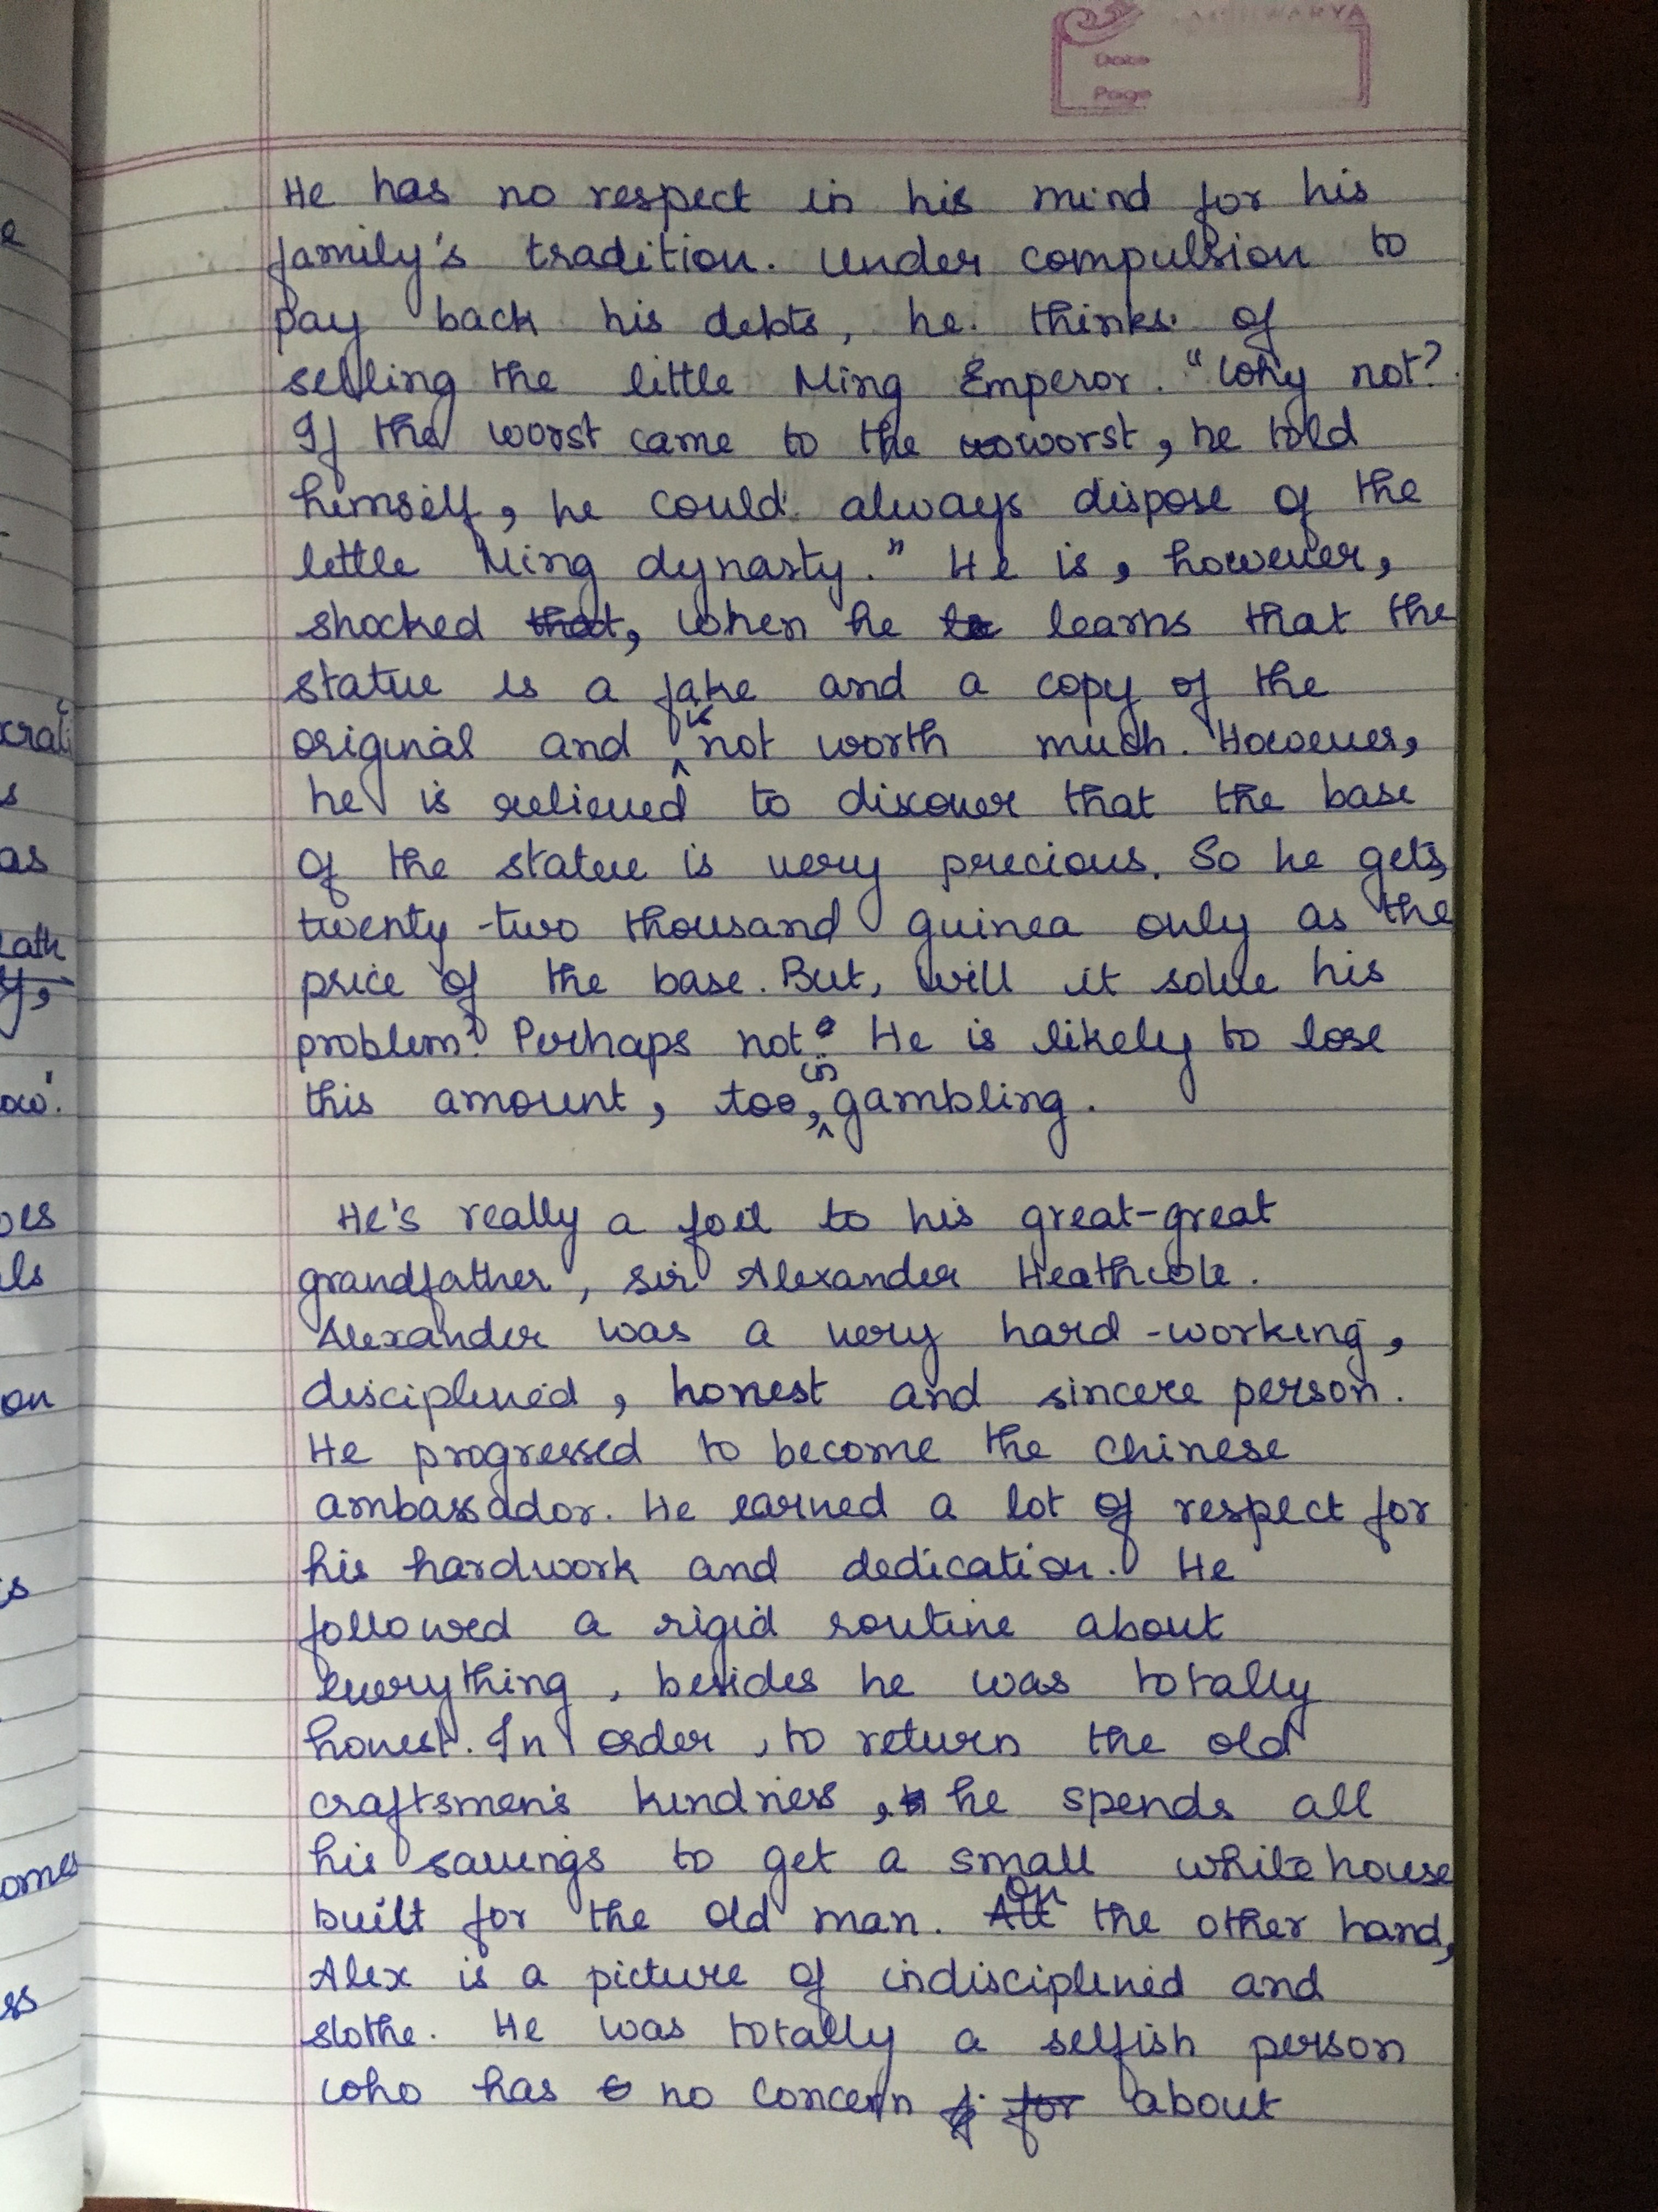 AISHWARYA
Date
Page
He has no respect in his mind for his
family's tradition. Under compulsion to
pay back his debts, he thinks of
selling the little Ming Emperor. "Why not?
If the worst came to the worst, he told
himself, he could always dispose of the
little Ming dynasty." He is, however,
shocked that, when he learns that the
statue is a fake and a copy of the
original and is not worth much. However,
he is relieved to discover that the base
of the statue is very precious. So he gets
twenty-two thousand guinea only as the
price of the base. But, will it solve his
problem? Perhaps not. He is likely to lose
this amount, too, in gambling.
He's really a foil to his great-great
grandfather, Sir Alexander Heathcote.
Alexander was a very hard-working,
disciplined, honest and sincere person.
He progressed to become the Chinese
ambassador. He earned a lot of respect for
his hardwork and dedication. He
followed a rigid routine about
everything, besides he was totally
honest. In order, to return the old
craftsmen's kindness, he spends all
his savings to get a small white house
built for the old man. On the other hand,
Alex is a picture of indisciplined and
slothe. He was totally a selfish person
who has no concern for about